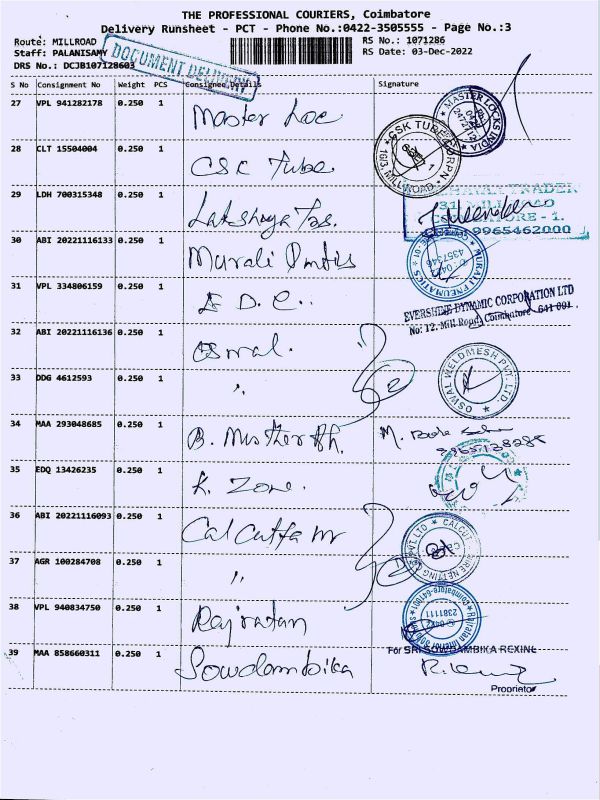 THE PROFESSIONAL COURIERS, Coimbatore
Delivery Runsheet - PCT - Phone No.:0422-3505555 - Page No.:3
Route: MILLROAD RS No.: 1071286
Staff: PALANISAMY RS Date: 03-Dec-2022
DRS No.: DCJB107128603
DOCUMENT DELIVERY
S No Consignment No Weight PCS Consignee Details Signature
27 VPL 941282178 0.250 1 Master Loc
MASTER LOCKS INDIA
28 CLT 15504004 0.250 1 CSK Tube
CSK TUBE CORPN
163 MILLROAD
29 LDH 700315348 0.250 1 Lakshaya Tas.
TRADER
9965462000
30 ABI 20221116133 0.250 1 Murali
MURALI PNEUMATICS
4357346
31 VPL 334806159 0.250 1 E D C
EVERSHINE DYNAMIC CORPORATION LTD
No: 12, Mill Road, Coimbatore 641 001.
32 ABI 20221116136 0.250 1 Oswal.
33 DDG 4612593 0.250 1 "
OSWAL WELDMESH PVT. LTD.
34 MAA 293048685 0.250 1 B.
M.
35 EDQ 13426235 0.250 1 K. Zone.
36 ABI 20221116093 0.250 1 Calcutta
37 AGR 100284708 0.250 1 "
38 VPL 940834750 0.250 1 Rajratan
2381111
39 MAA 858660311 0.250 1 Sowdambika
For SRI SOWDAMBIKA REXINE
Proprietor